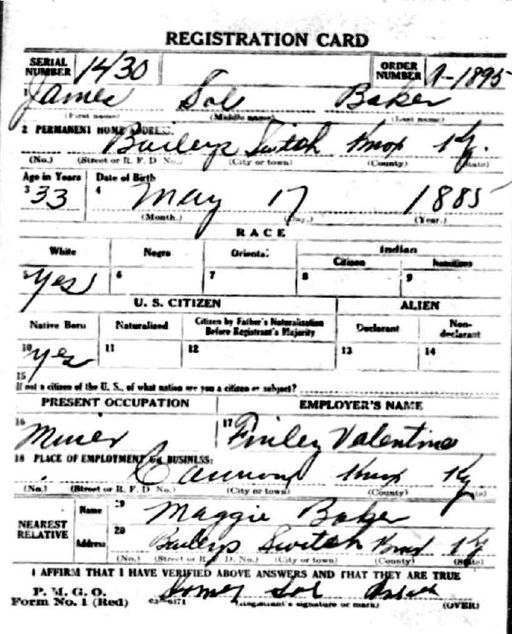 REGISTRATION CARD
SERIAL NUMBER 1430 ORDER NUMBER A-1895
1 James Sol Baker
(First name) (Middle name) (Last name)
2 PERMANENT HOME ADDRESS: Baileys Switch Knox Ky.
(No.) (Street or R. F. D. No.) (City or town) (County) (State)
Age in Years Date of Birth
3 33 4 May 17 1885
(Month.) (Day.) (Year.)
RACE
White Negro Oriental Indian
Citizen Noncitizen
5 Yes 6 7 8 9
U. S. CITIZEN ALIEN
Native Born Naturalized Citizen by Father's Naturalization Before Registrant's Majority Declarant Non-declarant
10 yes 11 12 13 14
15
If not a citizen of the U. S., of what nation are you a citizen or subject?
PRESENT OCCUPATION EMPLOYER'S NAME
16 Miner 17 Finley Valentine
18 PLACE OF EMPLOYMENT OR BUSINESS: Knox Ky
(No.) (Street or R. F. D. No.) (City or town) (County) (State)
NEAREST RELATIVE Name 19 Maggie Baker
Address 20 Baileys Switch Knox Ky
(No.) (Street or R. F. D. No.) (City or town) (County) (State)
I AFFIRM THAT I HAVE VERIFIED ABOVE ANSWERS AND THAT THEY ARE TRUE
P. M. G. O.
Form No. 1 (Red) James Sol
(Registrant's signature or mark) (OVER)